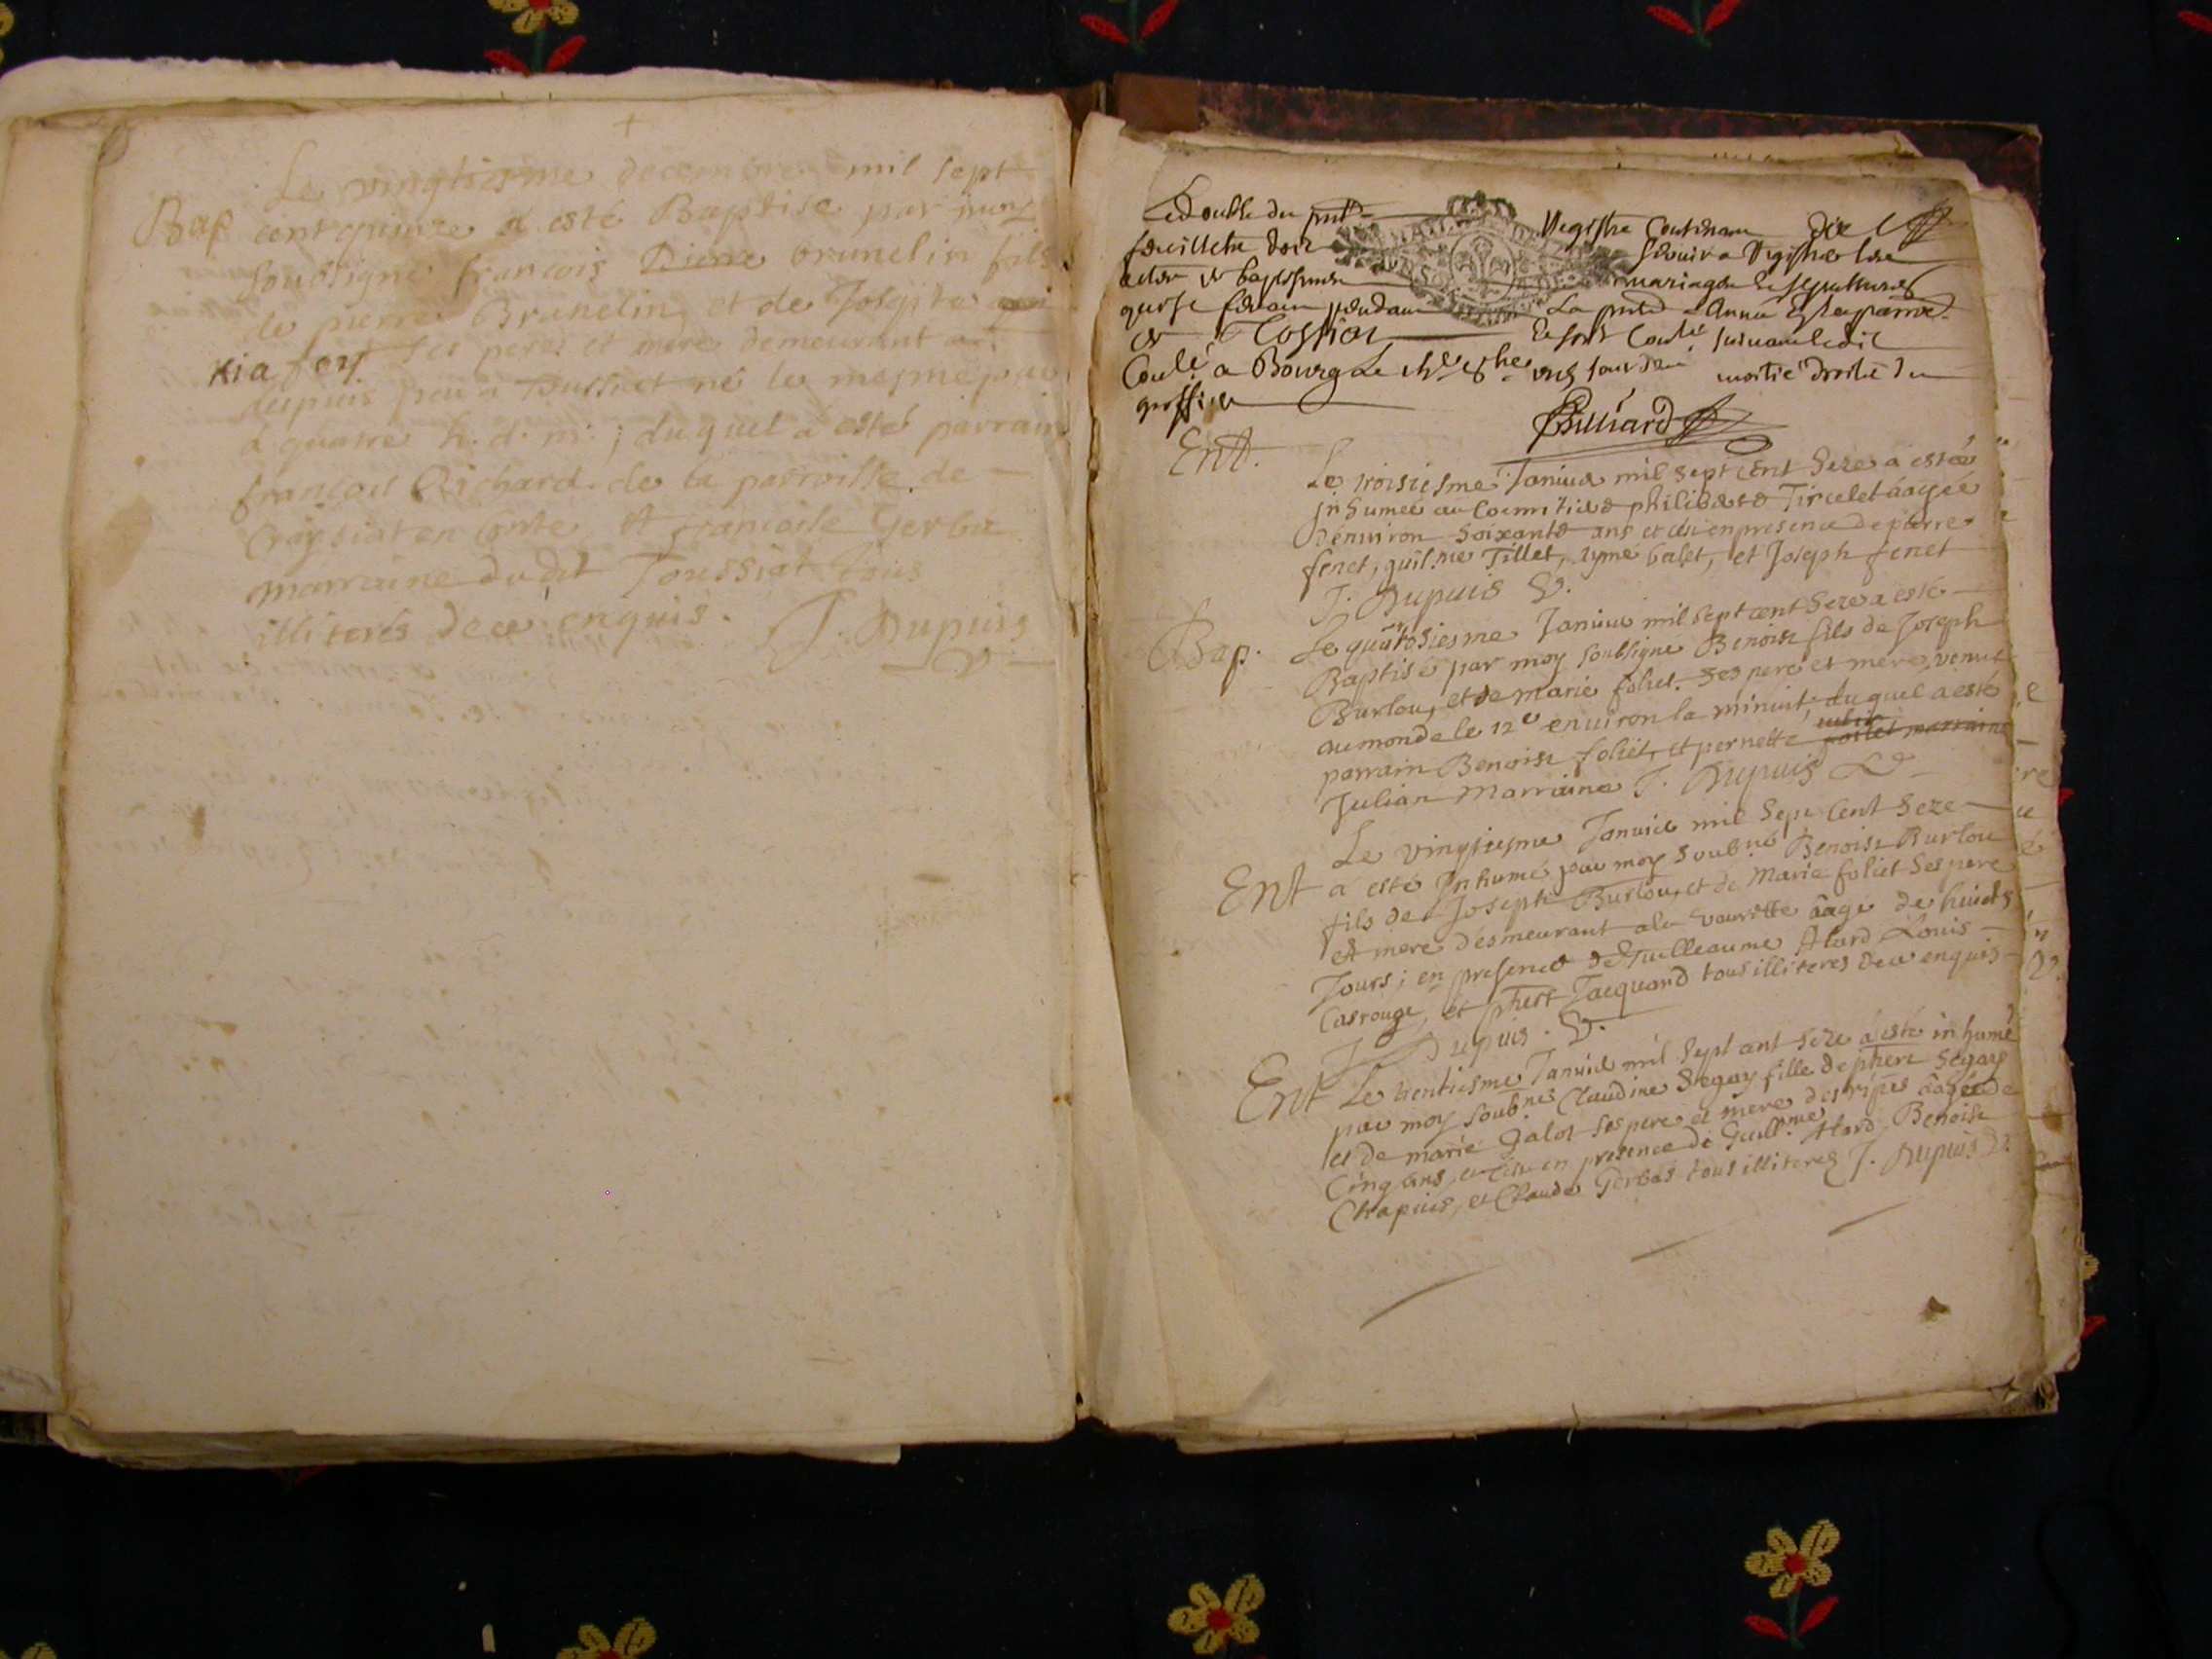 Le vingtiesme decembre mil sept
Bap cent quinze a esté Baptisé par
soubsigné francois Pierre brunelin fils
de pierre Brunelin et de Josepte
ses peres et mere demeurant
despuis peu a Toussiat né le mesme
a quatre h. d. m. ; duquel a esté parrain
francois Richard de la parroisse de
en conte et francoise Gerba
marraine dudit Toussiat tous
illiterés de ce enquis. J. Dupuis
V
Le double du pnt Registre Contenant dix
feuillets doit servir a Registrer les
actes de baptesmes mariages et sepultures
qui se feront pendant La pnte année
de Tossiat
a Bourg Le moitié droite du
greffier
Billiard
Ent.
Le troisiesme Janvier mil sept cent seze a estée
inhumée au Coemitiere philiberte Tircelet aagée
denviron soixante ans et ce en presence de pierre
fenet, guil.me Tillet, ayme balet, et Joseph fenet
J. Dupuis V.
Bap. Le quatosiesme Janvier mil sept cent seze a esté
Baptisé par moy soubsigné Benoist fils de Joseph
Burlou, et de marie foliet ses pere et mere, venut
au monde le 12e environ la minuit, duquel a esté
parrain Benoist foliet, et pernette foilet marraine
Julian Marraine J. Dupuis V
Le vingtiesme Janvier mil Sept Cent Seze
Ent a esté Inhumé par moy soub.né Benoist Burlou
fils de Joseph Burlou, et de Marie foliet ses pere
et mere desmeurant a la vavrette aagé de huict
Jours ; en presence de Guilleaume Alard Louis
Casrouge, et phert Jacquard tous illiteres de ce enquis
J Dupuis . V.
Ent Le trentiesme Janvier mil sept cent seze a esté inhumé
par moy soub.né Claudine Segay fille de phert Segay
et de marie Galot ses pere et mere des ripes aagée de
Cinq ans, et ce en presence de Guill.me Alard, Benoist
Chapuis, et Claude Gerbas tous illiteres J. Dupuis V.